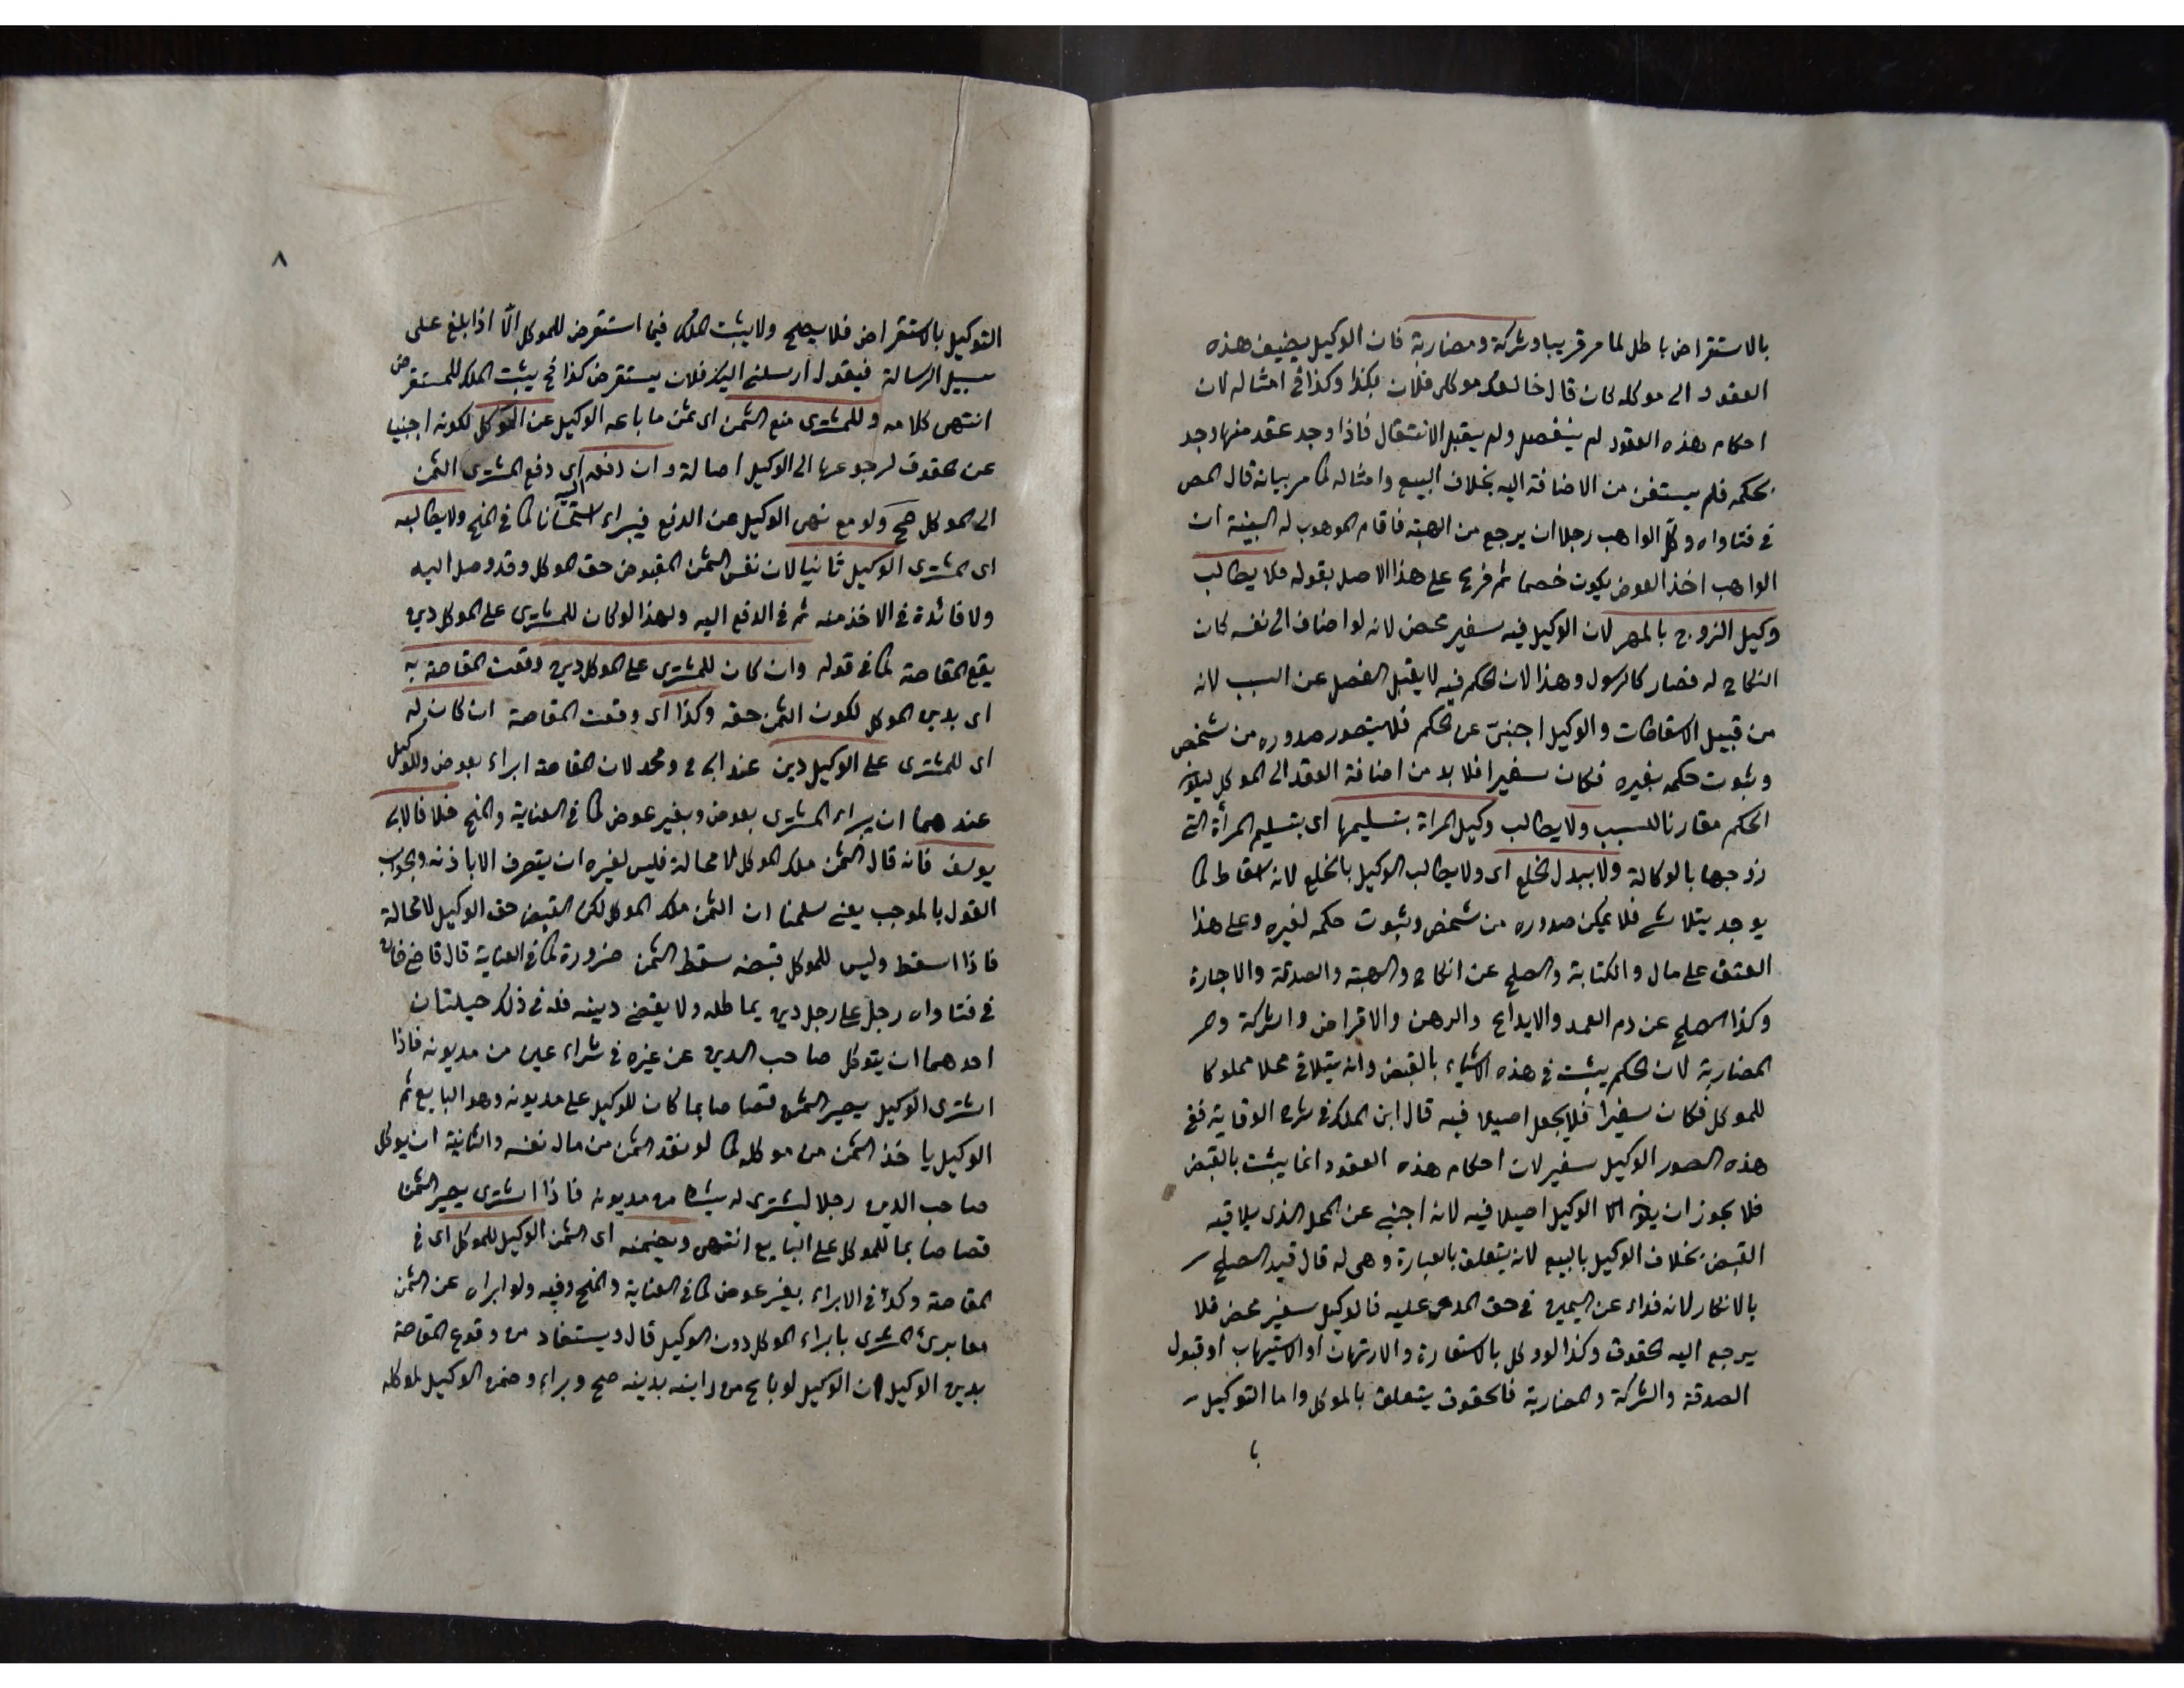 بالاستقراض باطل لما مر قريبا وشركة ومضاربة فان الوكيل يضيف هذه
العقود الى موكله كان قال خالعك موكلى فلان بكذا وكذا فى امثاله لان
احكام هذه العقود لم ينفصل ولم يقبل الانتقال فاذا وجد عقد منها وجد
بحكمه فلم يستغن من الاضافة اليه بخلاف البيع وامثاله كما مر بيانه قال المص
فى فتاواه وكل الواهب رجلا ان يرجع من الهبة فاقام الموهوب له البينة ان
الواهب اخذ العوض يكون خصما ثم فرع على هذا الاصل بقوله فلا يطالب
وكيل الزوج بالمهر لان الوكيل فيه سفير محض لانه لو اضاف الى نفسه كان
النكاح له فصار كالرسول وهذا لان الحكم فيه لا يقبل الفصل عن السبب لانه
من قبيل الاسقاطات والوكيل اجنبى عن الحكم فلا يتصور صدوره من شخص
وثبوت حكمه لغيره فكان سفيرا فلا بد من اضافة العقد الى الموكل ليكون
الحكم مقارنا للسبب ولا يطالب وكيل المراة بتسليمها اى بتسليم المرأة التى
زوجها بالوكالة ولا ببدل الخلع اى ولا يطالب الوكيل بالخلع لانه اسقاط كما
يوجد يتلاشى فلا يمكن صدوره من شخص وثبوت حكمه لغيره وعلى هذا
العتق على مال والكتابة والصلح عن انكار والهبة والصدقة والاجارة
وكذا الصلح عن دم العمد والايداع والرهن والاقراض والشركة و
المضاربة لان الحكم يثبت فى هذه الاشياء بالقبض وانه يتلاقى محلا مملوكا
للموكل فكان سفيرا فلا يجعل اصيلا فيه قال ابن الملك فى شرح الوقاية ففى
هذه الصور الوكيل سفير لان احكام هذه العقود انما يثبت بالقبض
فلا يجوز ان يكون الوكيل اصيلا فيه لانه اجنبى عن المحل الذى يلاقيه
القبض بخلاف الوكيل بالبيع لانه يتعلق بالعبارة وهى له قال قيد الصلح
بالانكار لانه فداء عن اليمين فى حق المدعى عليه فالوكيل سفير محض فلا
يرجع اليه الحقوق وكذا لو وكل بالاستعارة والارتهان او الاستيهاب او قبول
الصدقة والشركة والمضاربة فالحقوق يتعلق بالموكل واما التوكيل
با
٨
التوكيل بالاستقراض فلا يصح ولا يثبت الملك فيما استقرض للموكل الا اذا بلغ على
سبيل الرسالة فيقول ارسلنى اليك فلان يستقرض كذا فح يثبت الملك للمستقرض
انتهى كلامه وللمشترى منع الثمن اى ثمن ما باعه الوكيل عن الموكل لكونه اجنبيا
عن الحقوق لرجوعها الى الوكيل اصالة وان دفعه اى دفع المشترى الثمن
اليه
الى الموكل صح ولو مع نهى الوكيل عن الدفع فيبراء استحسانا كما فى المنح ولا يطالبه
اى المشترى الوكيل ثانيا لان نفس الثمن المقبوض حق الموكل وقد وصل اليه
ولا فائدة فى الاخذ منه ثم فى الدفع اليه ولهذا لو كان للمشترى على الموكل دين
يقع المقاصة كما فى قوله وان كان للمشترى على الموكل دين وقعت المقاصة به
اى بدين الموكل لكون الثمن حقه وكذا اى وقعت المقاصة ان كان له
اى للمشترى على الوكيل دين عند ابى ح ومحمد لان المقاصة ابراء بعوض وللوكيل
عندهما ان يبراء المشترى بعوض وبغير عوض كما فى العناية والمنح خلافا لابى
يوسف فانه قال الثمن ملك الموكل لا محالة فليس لغيره ان يتصرف الا باذنه والجواب
القول بالموجب يعنى سلمنا ان الثمن ملك الموكل لكن القبض حق الوكيل لا محالة
فاذا اسقط وليس للموكل قبضه سقط الثمن ضرورة كما فى العناية قال قاضيخان
فى فتاواه رجل على رجل دين يماطله ولا يقضى دينه فله فى ذلك حيلتان
احدهما ان يتوكل صاحب الدين عن غيره فى شراء عين من مديونه فاذا
اشترى الوكيل يصير الثمن قصاصا بما كان للوكيل على مديونه وهو البايع ثم
الوكيل ياخذ الثمن من موكله كما لو نقد الثمن من مال نفسه والثانية ان يوكل
صاحب الدين رجلا ليشترى له شيئا من مديونه فاذا اشترى يصير الثمن
قصاصا بما للموكل على البايع انتهى ويضمنه اى الثمن الوكيل للموكل اى فى
المقاصة وكذا فى الابراء بغير عوض كما فى العناية والمنح وفيه ولو ابراه عن الثمن
معا برئ المشترى بابراء الموكل دون الوكيل قال ويستفاد من وقوع المقاصة
بدين الوكيل ان الوكيل لو باع من داينه بدينه صح وبراء وضمن الوكيل لموكله